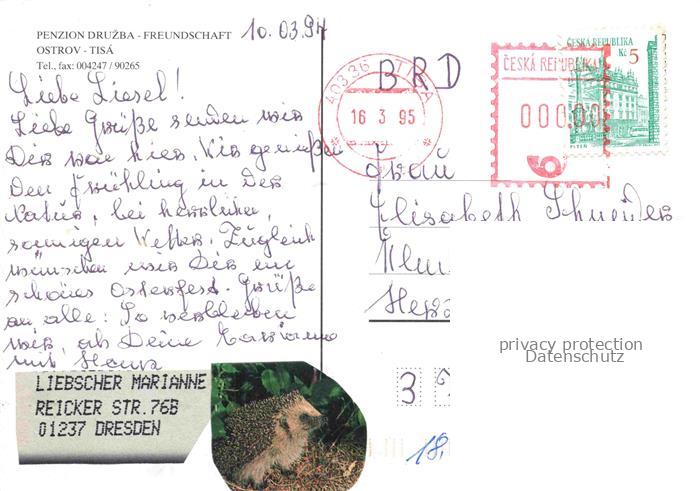 PENZION DRUŽBA - FREUNDSCHAFT
OSTROV - TISÁ
Tel., fax: 004247 / 90265
10.03.94
Liebe Liesel!
Liebe Grüße senden wir
Dir von hier. Wir genießen
Den Frühling in der
Natur, bei herrlichem,
sonnigen Wetter. Zugleich
wünschen wir Dir ein
schönes Osterfest. Grüße
an alle. So verbleiben
wir, als Deine
mit
LIEBSCHER MARIANNE
REICKER STR.76B
01237 DRESDEN
BRD
40336 TISÁ
16 3 95
ČESKÁ REPUBLIKA
000.00
ČESKÁ REPUBLIKA
Kč 5
PLZEŇ
Frau
Elisabeth Schneider
privacy protection
Datenschutz
3
18.